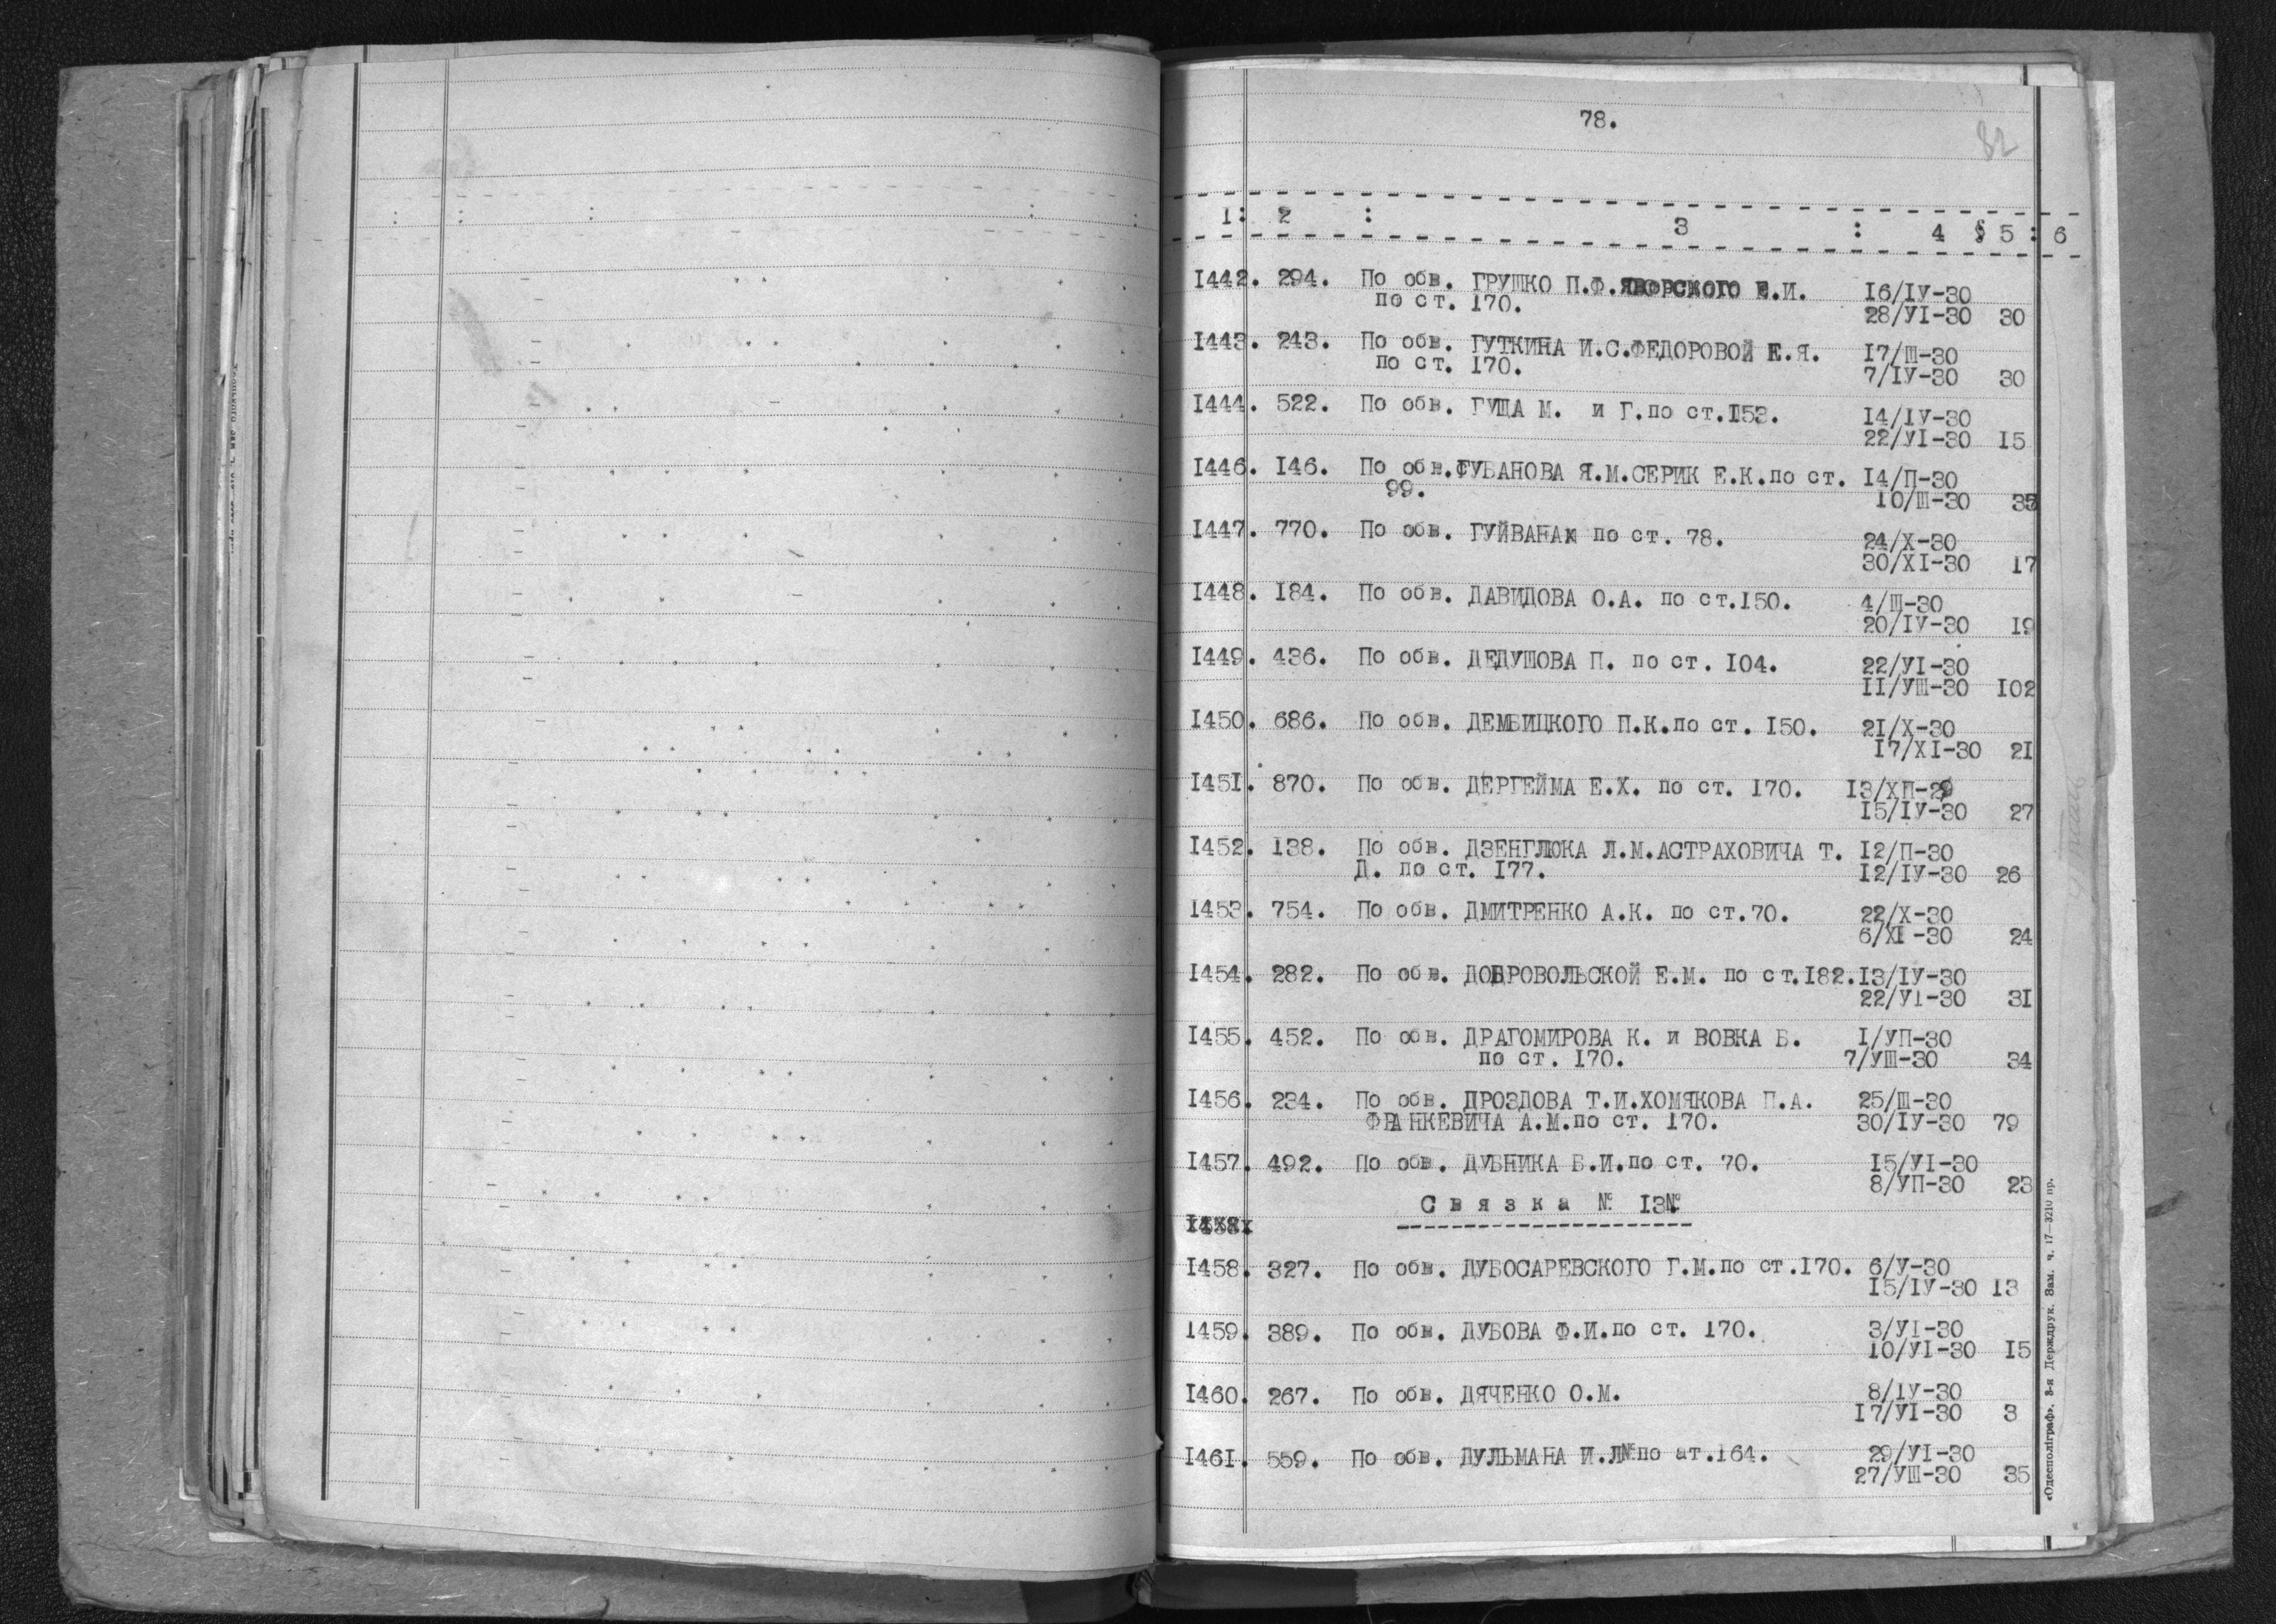 78.
82
1: 2 : 3 : 4 § 5 : 6
I442. 294. По обв. ГРУШКО П.Ф.ЯВОРСКОГО Е.И. I6/IУ-30
по ст. I70. 28/УI-30 30
I443. 243. По обв. ГУТКИНА И.С.ФЕДОРОВОЙ Е.Я. I7/Ш-30
по ст. I70. 7/IУ-30 30
I444. 522. По обв. ГУЩА М. и Г.по ст.I53. I4/IУ-30
22/УI-30 I5
I446. I46. По обв.ГУБАНОВА Я.М.СЕРИК Е.К.по ст. I4/П-30
99. I0/Ш-30 35
I447. 770. По обв. ГУЙВАНАх по ст. 78. 24/Х-30
30/ХI-30 I7
I448. I84. По обв. ДАВИДОВА О.А. по ст.I50. 4/Ш-30
20/IУ-30 I9
I449. 436. По обв. ДЕДУШОВА П. по ст. I04. 22/УI-30
II/УШ-30 I02
I450. 686. По обв. ДЕМБИЦКОГО П.К.по ст. I50. 2I/Х-30
I7/ХI-30 2I
I45I. 870. По обв. ДЕРГЕЙМА Е.Х. по ст. I70. I3/ХП-29
I5/IУ-30 27
I452. I38. По обв. ДЗЕНГЛЮКА Л.М.АСТРАХОВИЧА Т. I2/П-30
Д. по ст. I77. I2/IУ-30 26
I453. 754. По обв. ДМИТРЕНКО А.К. по ст.70. 22/Х-30
6/ХI-30 24
I454. 282. По обв. ДОБРОВОЛЬСКОЙ Е.М. по ст.I82. I3/IУ-30
22/УI-30 3I
I455. 452. По обв. ДРАГОМИРОВА К. и ВОВКА Б. I/УП-30
по ст. I70. 7/УШ-30 34
I456. 234. По обв. ДРОЗДОВА Т.И.ХОМЯКОВА П.А. 25/Ш-30
ФРАНКЕВИЧА А.М.по ст. I70. 30/IУ-30 79
I457. 492. По обв. ДУБНИКА Б.И.по ст. 70. I5/УI-30
8/УП-30 23
Связка № I3№
I458. 327. По обв. ДУБОСАРЕВСКОГО Г.М.по ст.I70. 6/У-30
I5/IУ-30 I3
I459. 389. По обв. ДУБОВА Ф.И.по ст. I70. 3/УI-30
I0/УI-30 I5
I460. 267. По обв. ДЯЧЕНКО О.М. 8/IУ-30
I7/УI-30 3
I46I. 559. По обв. ДУЛЬМАНА И.Л№по ат.I64. 29/УI-30
27/УШ-30 35
«Одесполіграф». 3-я Держдрук. Зам. ч. 17—3210 пр.